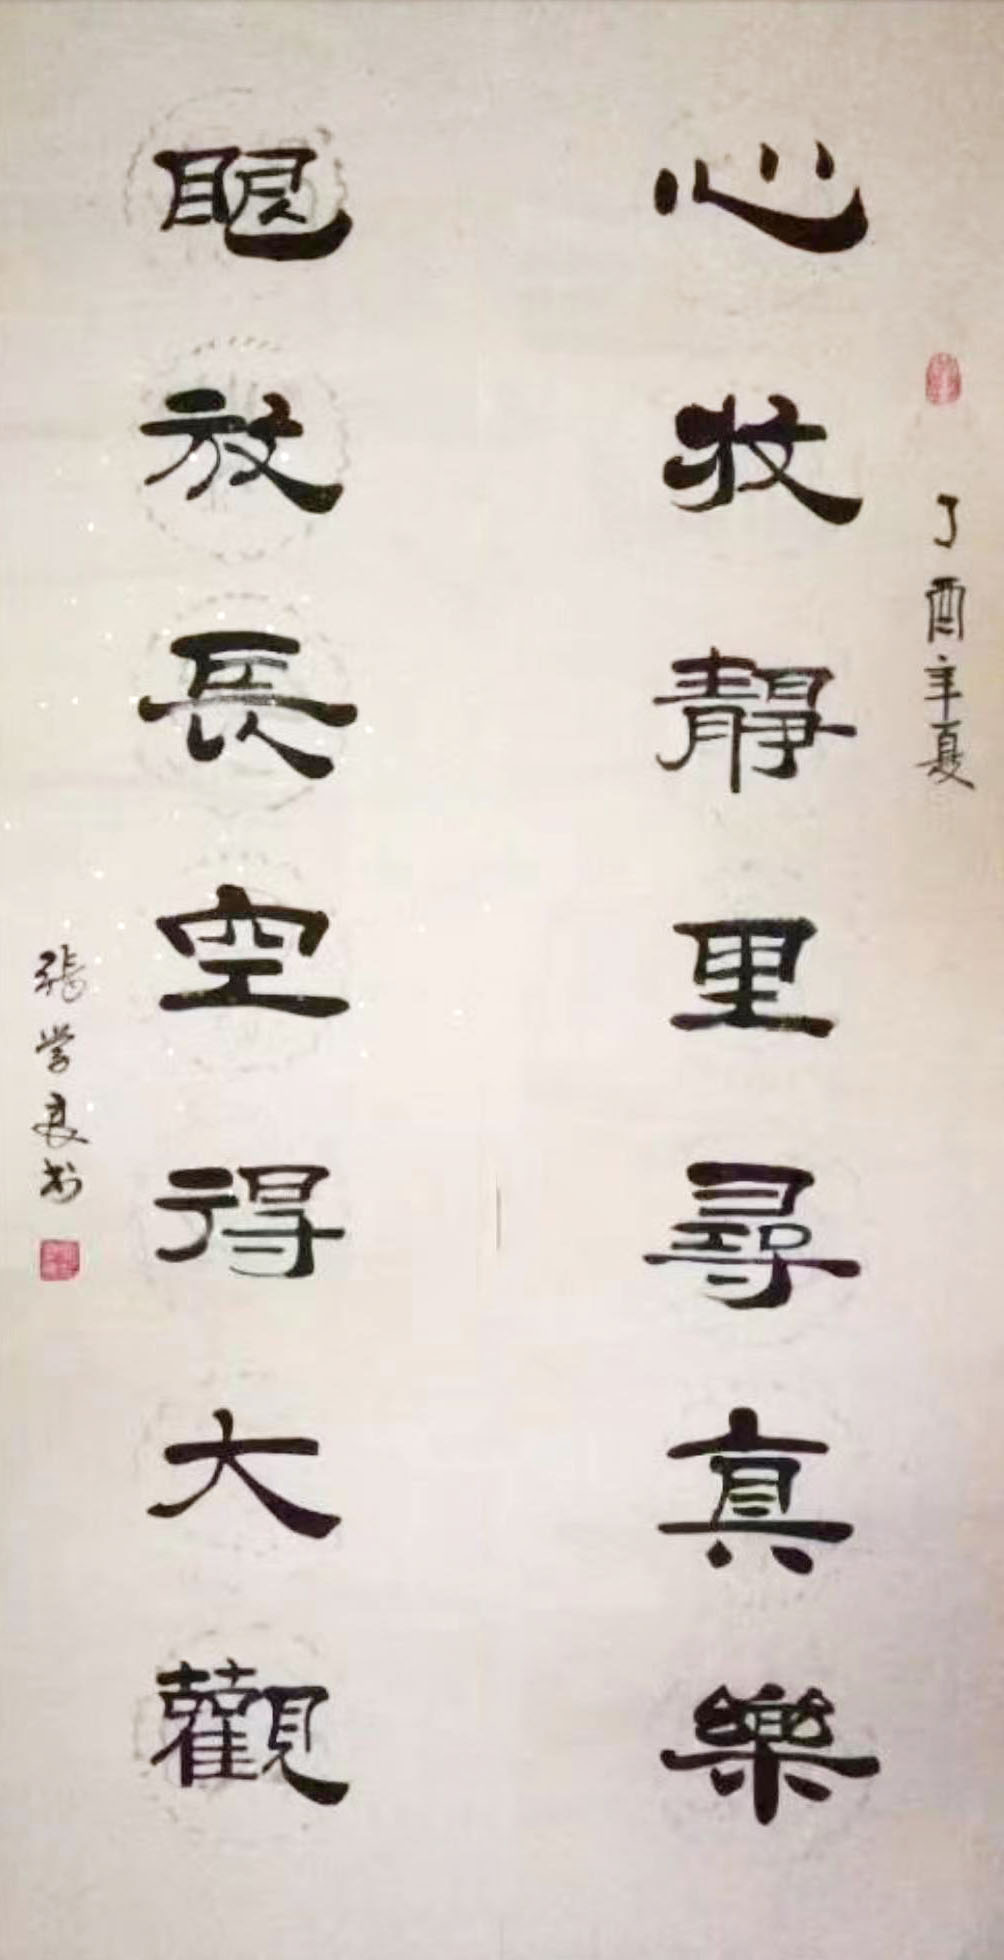 丁酉年夏
心收靜里尋真樂
眼放長空得大觀
張学良书